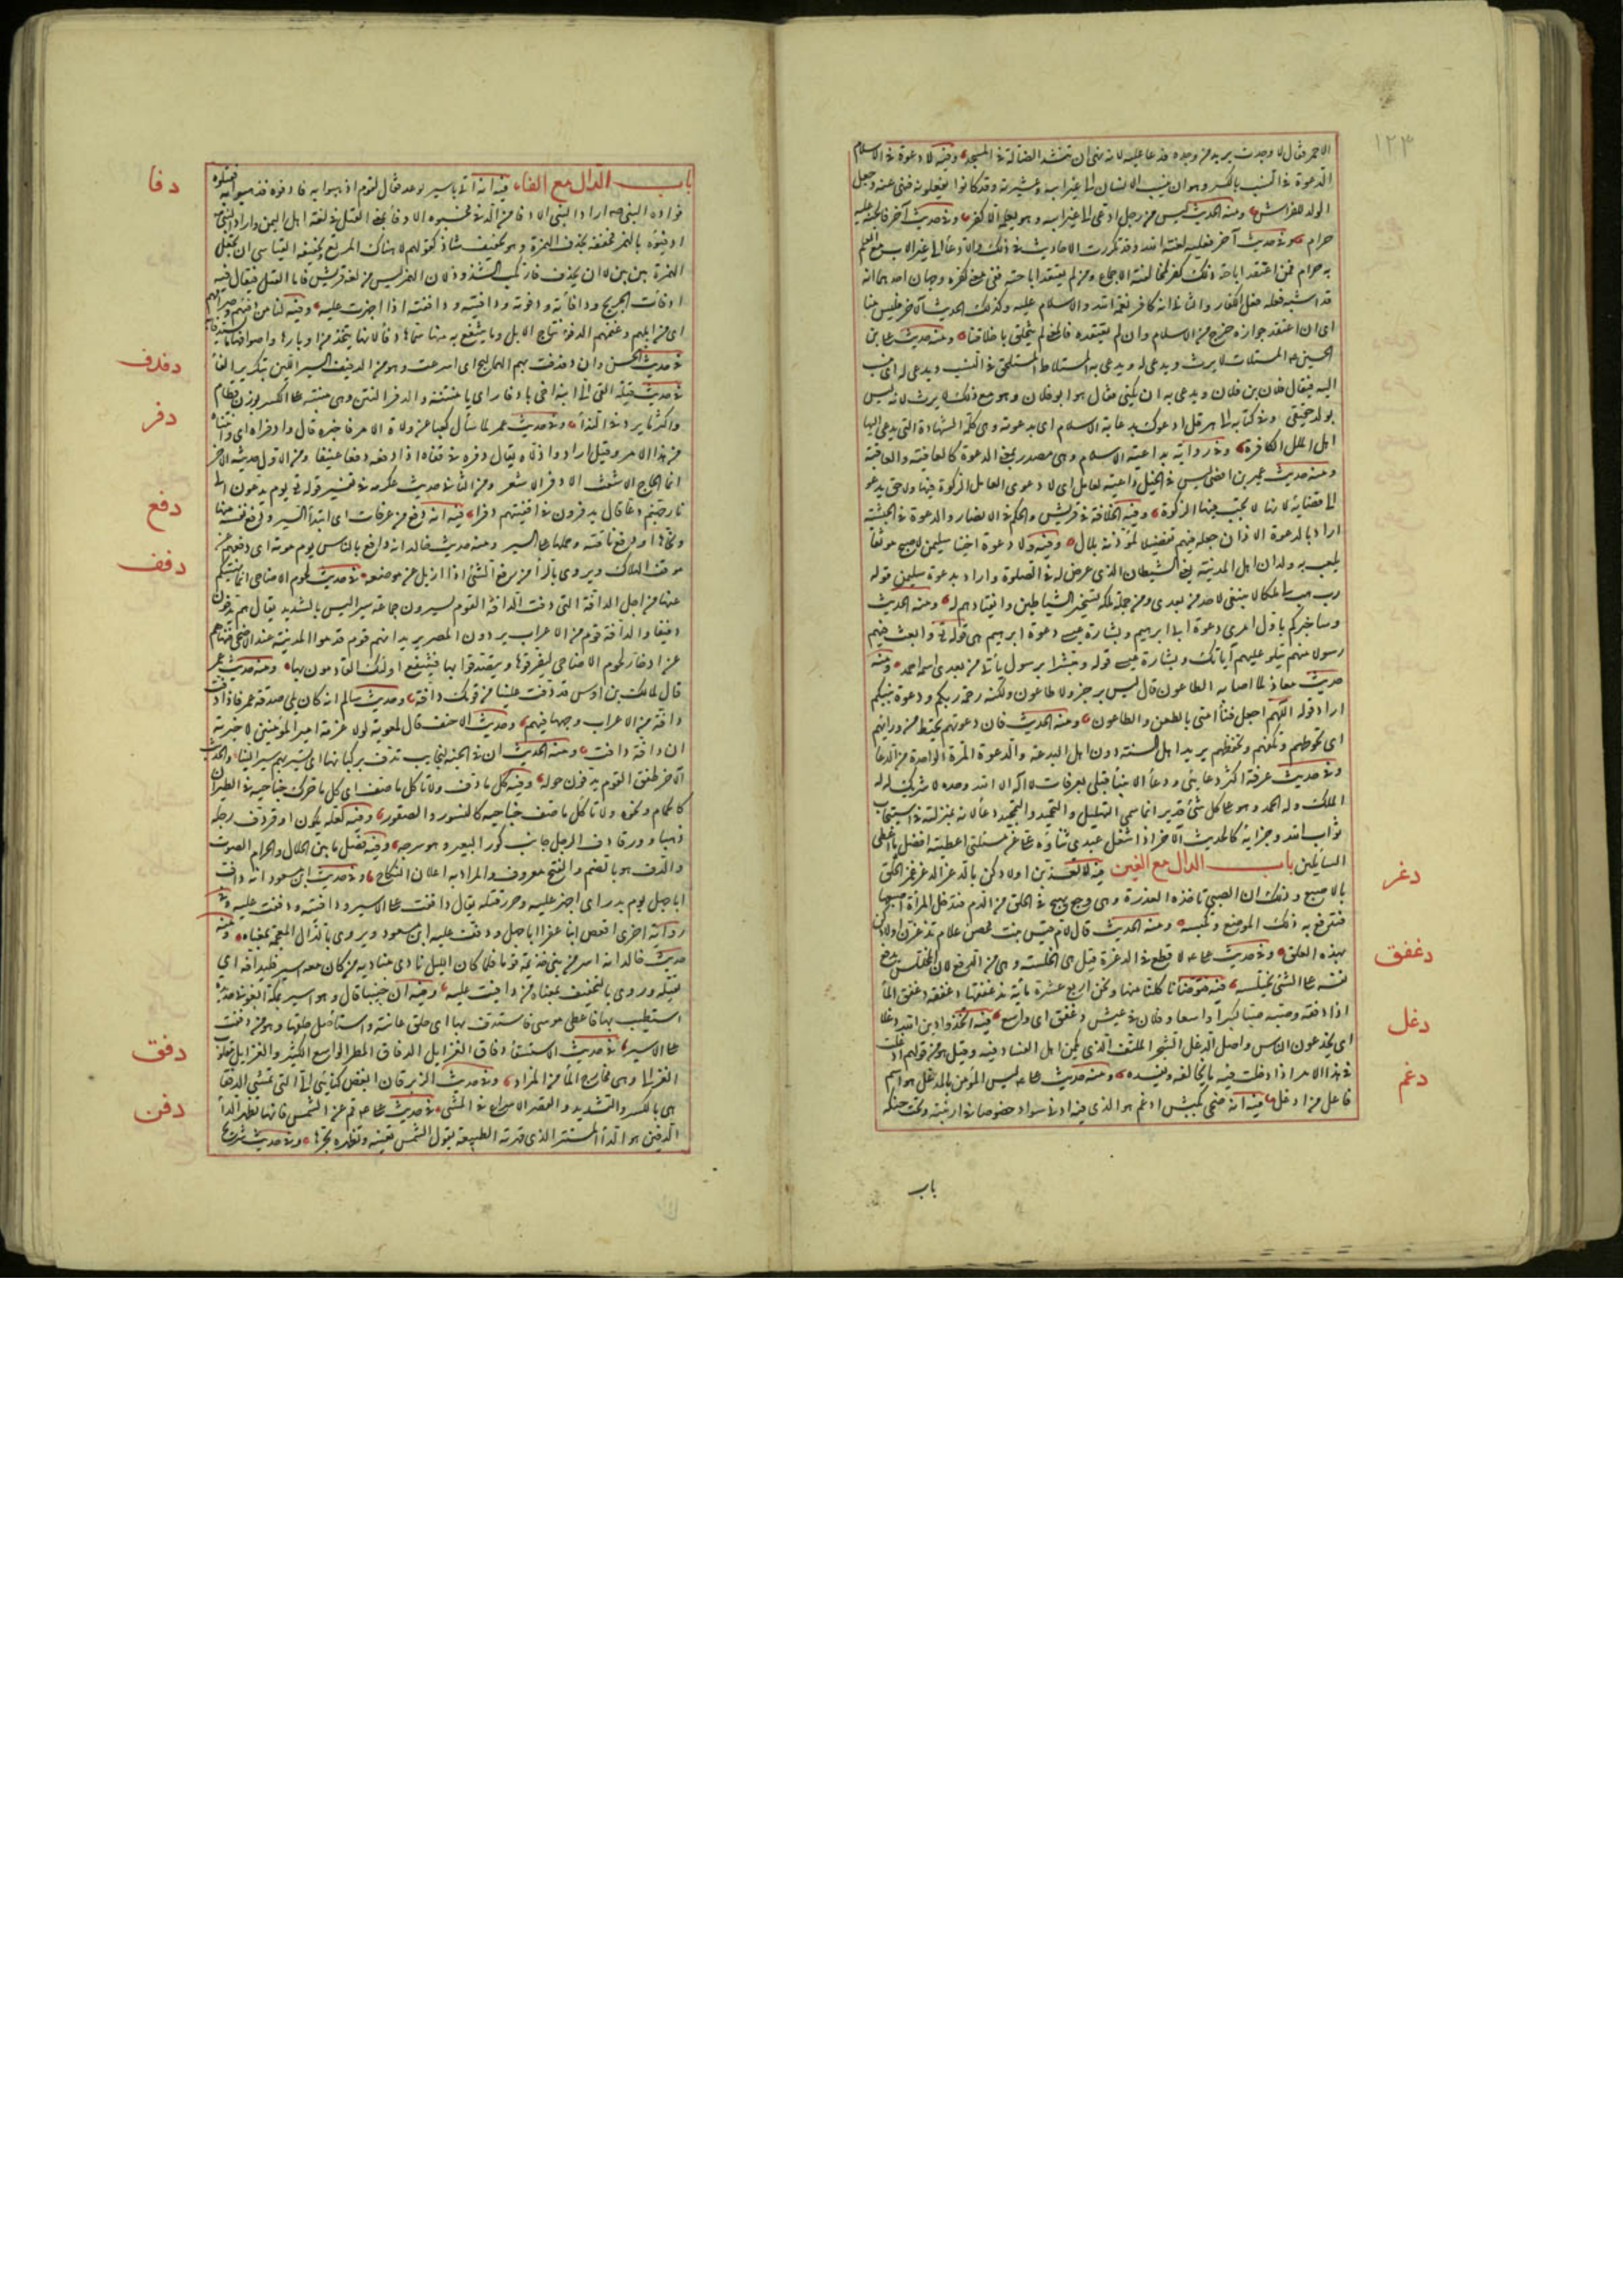 ١٢٣
الاحمر فقال لا وجدت يريد من وجده فدعا عليه لانه نهى ان تنشد الضالة في المسجد وفيه لا دعوة في الاسلام
الدعوة في النسب بالكسر وهو ان ينتسب الانسان الى غير ابيه وعشيرته وقد كانوا يفعلونه فنهى عنه وجعل
الولد للفراش ومنه الحديث ليس من رجل ادعى الى غير ابيه وهو يعلمه الا كفر وفي حديث آخر فالجنة عليه
حرام وفي حديث آخر فعليه لعنة الله وقد تكررت الاحاديث في ذلك والادعاء الى غير الاب مع العلم
به حرام فمن اعتقد اباحة ذلك كفر لمخالفته الاجماع ومن لم يعتقد اباحته ففي معنى كفره وجهان احدهما انه
قد اشبه فعله فعل الكفار والثاني انه كافر نعمة الله والاسلام عليه وكذلك الحديث الآخر فليس منا
اى ان اعتقد جوازه خرج من الاسلام وان لم يعتقده فالمعنى لم يتخلق باخلاقنا ومنه حديث على بن
الحسين المستلاط لا يرث ويدعى له ويدعى به المستلاط المستلحق في النسب ويدعى له اى ينسب
اليه فيقال فلان بن فلان ويدعى به ان يكنى فيقال هو ابو فلان وهو مع ذلك لا يرث لانه ليس
بولد حقيقى وفي كتابه الى هرقل ادعوك بدعاية الاسلام اى بدعوته وهى كلمة الشهادة التى يدعى اليها
اهل الملل الكافرة وفي رواية بداعية الاسلام وهى مصدر بمعنى الدعوة كالعافية والعاقبة
ومنه حديث عمير بن افصى ليس في الخيل داعية لعامل اى لا دعوى لعامل الزكوة فيها ولا حق يدعو
الى قضائه لانها لا تجب فيها الزكوة وفيه الخلافة في قريش والحكم في الانصار والدعوة في الحبشة
اراد بالدعوة الاذان جعله فيهم تفضيلا لمؤذنه بلال وفيه لولا دعوة اخينا سليمن لاصبح موثقا
يلعب به ولدان اهل المدينة يعنى الشيطان الذى عرض له في الصلوة واراد بدعوة سليمن قوله
رب هب لى ملكا لا ينبغى لاحد من بعدى ومن جملة ملكه تسخير الشياطين وانقيادهم له ومنه الحديث
وساخبركم باول امرى دعوة ابى ابرهيم وبشارة عيسى دعوة ابرهيم هى قوله تع وابعث فيهم
رسولا منهم يتلو عليهم آياتك وبشارة عيسى قوله ومبشرا برسول يأتى من بعدى اسمه احمد ومنه
حديث معاذ لما اصابه الطاعون قال ليس برجز ولا طاعون ولكنه رحمة ربكم ودعوة نبيكم
اراد قوله اللهم اجعل فناء امتى بالطعن والطاعون ومنه الحديث فان دعوتهم تحيط من ورائهم
اى تحوطهم وتكنفهم وتحفظهم يريد اهل السنة دون اهل البدعة والدعوة المرة الواحدة من الدعاء
وفي حديث عرفة اكثر دعائى ودعاء الانبياء قبلى بعرفات لا اله الا الله وحده لا شريك له له
الملك وله الحمد وهو على كل شئ قدير انما سمى التهليل والتحميد والتمجيد دعاء لانه بمنزلته في استيجاب
ثواب الله وجزائه كالحديث الآخر اذا شغل عبدى ثناؤه على عن مسئلتى اعطيته افضل ما اعطى
السائلين باب الدال مع الغين فيه لا تعذبن اولادكن بالدغر الدغر غمز الحلق
بالاصبع وذلك ان الصبى تاخذه العذرة وهى وجع يهيج في الحلق من الدم فتدخل المرأة اصبعها
فترفع به ذلك الموضع وتكبسه ومنه الحديث قال لام قيس بنت محصن علام تدغرن اولادكن
بهذه العلق وفي حديث على لا قطع في الدغرة قيل هى الخلسة وهى من الدفع لان المختلس يدفع
نفسه على الشئ ليختلسه فيه فتوضأنا كلنا منها ونحن اربع عشرة مائة ندغفقها دغفقة دغفق الماء
اذا دفقه وصبه صبا كثيرا واسعا وفلان في عيش دغفق اى واسع فيه اتخذوا دين الله دغلا
اى يخدعون الناس واصل الدغل الشجر الملتف الذى يكمن اهل الفساد فيه وقيل هو من قولهم ادغلت
في هذا الامر اذا ادخلت فيه ما يخالفه ويفسده ومنه حديث على ليس المؤمن بالمدغل هو اسم
فاعل من ادغل فيه انه ضحى بكبش ادغم هو الذى فيه ادنى سواد خصوصا في ارنبته وتحت حنكه
دغر
دغفق
دغل
دغم
باب
باب الدال مع الفاء فيه انه اتى باسير يوعد فقال لقوم اذهبوا به فادفوه فذهبوا به فقتلوه
فوداه النبى اراد النبى الادفاء من الدفء فحسبوه الادفاء بمعنى القتل في لغة اهل اليمن واراد النبى
ادفئوه بالهمز فخففه بحذف الهمزة وهو تخفيف شاذ كقولهم لا هناك المرتع وتخفيفه القياسى ان تجعل
الهمزة بين بين لا ان تحذف فارتكب الشذوذ لان الهمز ليس من لغة قريش فاما القتل فيقال فيه
ادفأت الجريح ودافأته ودفوته ودافيته ودافته اذا اجهزت عليه وفيه لنا من دفئهم وصرامهم
اى من ابلهم وغنمهم الدفء نتاج الابل وما ينتفع به منها سماها دفأ لانها يتخذ من اوبارها واصوافها ما يستدفأ به
في حديث الحسن وان دفدفت بهم الهماليج اى اسرعت وهو من الدفيف السير اللين بتكرير الفاء
في حديث قيلة القى الى ابنة اخى يا دفار اى يا منتنة والدفر النتن وهى مبنية على الكسر بوزن قطام
واكثر ما يرد في النداء وفي حديث عمر لما سأل كعبا عن ولاة الامر فاخبره قال وادفراه اى وانتناه
من هذا الامر وقيل اراد واذلاه يقال دفره في قفاه اذا دفعه دفعا عنيفا ومن الاول حديثه الآخر
انما الحاج الاشعث الادفر الاشعر ومن الثانى حديث عكرمة في تفسير قوله تع يوم يدعون الى
نار جهنم دعا قال يدفرون في اقفيتهم دفرا فيه انه دفع من عرفات اى ابتدأ السير ودفع نفسه منها
ونحاها او دفع ناقته وحملها على السير ومنه حديث خالد انه دافع بالناس يوم موتة اى دفعهم عن
موقف الهلاك ويروى بالراء من رفع الشئ اذا ازيل عن موضعه في حديث لحوم الاضاحى انما نهيتكم
عنها من اجل الدافة التى دفت الدافة القوم يسيرون جماعة سيرا ليس بالشديد يقال هم يدفون
دفيفا والدافة قوم من الاعراب يردون المصر يريد انهم قوم قدموا المدينة عند الاضحى فنهاهم
عن ادخار لحوم الاضاحى ليفرقوها ويتصدقوا بها فينتفع اولئك القادمون بها ومنه حديث عمر
قال لمالك بن اوس قد دفت علينا من قومك دافة وحديث سالم انه كان يلى صدقة عمر فاذا دفت
دافة من الاعراب وجهها فيهم وحديث الاحنف قال لمعوية لولا عزمة امير المؤمنين لاخبرته
ان دافة دافت ومنه الحديث ان في الجنة لنجايب تدف بركبانها اى تسير بهم سيرا لينا والحديث
الآخر طفق القوم يدفون حوله وفيه كل ما دف ولا تاكل ما صف اى كل ما حرك جناحيه في الطيران
كالحمام ونحوه ولا تاكل ما صف جناحيه كالنسور والصقور وفيه لعله يكون اوقر دف رحله
ذهبا وورقا دف الرحل جانب كور البعير وهو سرجه وفيه فصل ما بين الحلال والحرام الصوت
والدف هو بالضم والفتح معروف والمراد به اعلان النكاح وفي حديث ابن مسعود انه داف
ابا جهل يوم بدر اى اجهز عليه وحرر قتله يقال داففت على الاسير ودافيته ودففت عليه وفي
رواية اخرى اقعص ابنا عفراء ابا جهل ودفف عليه ابن مسعود ويروى بالذال المعجمة بمعناه ومنه
حديث خالد انه اسر من بنى جذيمة قوما فلما كان الليل نادى مناديه من كان معه اسير فليدافه اى
يقتله وروى بالتخفيف بمعناه من دافيت عليه وفيه ان خبيبا قال وهو اسير بمكة ابغونى حديدة
استطيب بها فاعطى موسى فاستدف بها اى حلق عانته واستأصل حلقها وهو من دففت
على الاسير في حديث الاستسقاء دفاق العزايل الدفاق المطر الواسع الكثير والعزايل مقلوب
العزالى وهى مخارج الماء من المزاد وفي حديث الزبرقان ابغض كنائنى الى التى تمشى الدفقى
هى بالكسر والتشديد والقصر الاسراع في المشى في حديث على قم عن الشمس فانها تظهر الداء
الدفين هو الداء المستتر الذى قهرته الطبيعة يقول الشمس تعينه وتظهره بحرها وفي حديث شريح
دفا
دفدف
دفر
دفع
دفف
دفق
دفن